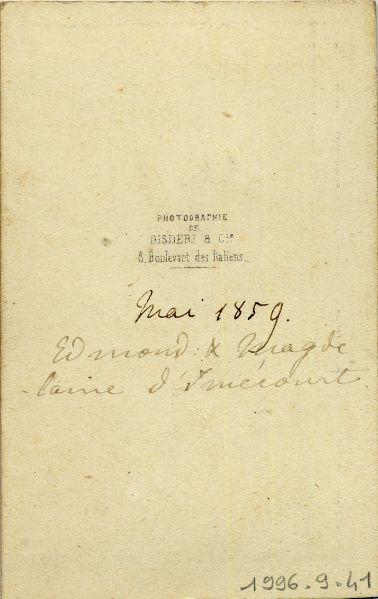 PHOTOGRAPHIE
DE
DISDÉRI & Cie
8, Boulevart des Italiens.
Mai 1859.
Edmond & Magde
-laine d'Imécourt
1996-9-41